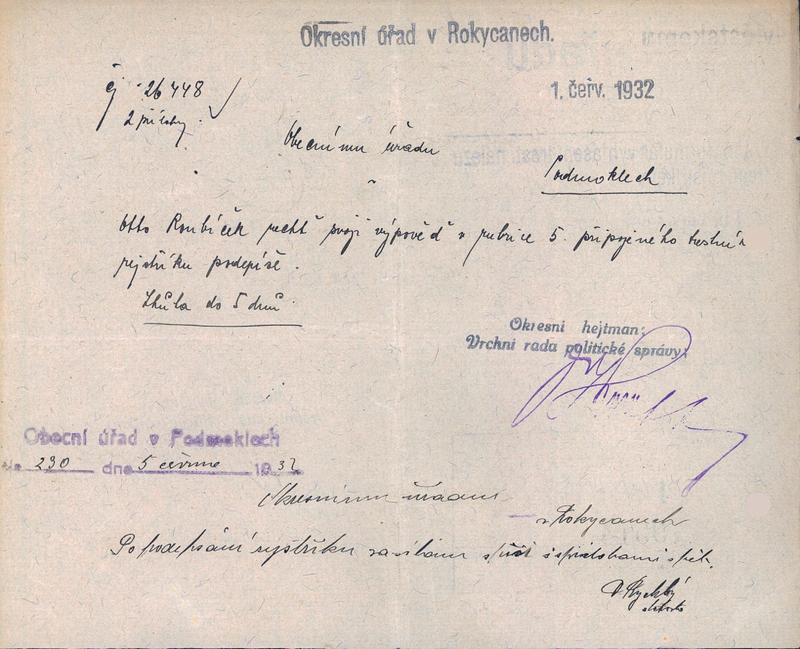 Okresní úřad v Rokycanech.
1. červ. 1932
čj 26448
2 přílohy.
Obecnímu úřadu
Podmoklech
Otto Roubíček nechť svoji výpověď v rubrice 5. připojeného
rejstříku podepíše.
Lhůta do 5 dnů.
Okresní hejtman:
Vrchní rada politické správy:
Obecní úřad v Podmoklech
230 dne 5 června 1932
Okresnímu úřadu
v Rokycanech
Po podepsání rejstříku zasílám spis s přílohami zpět.